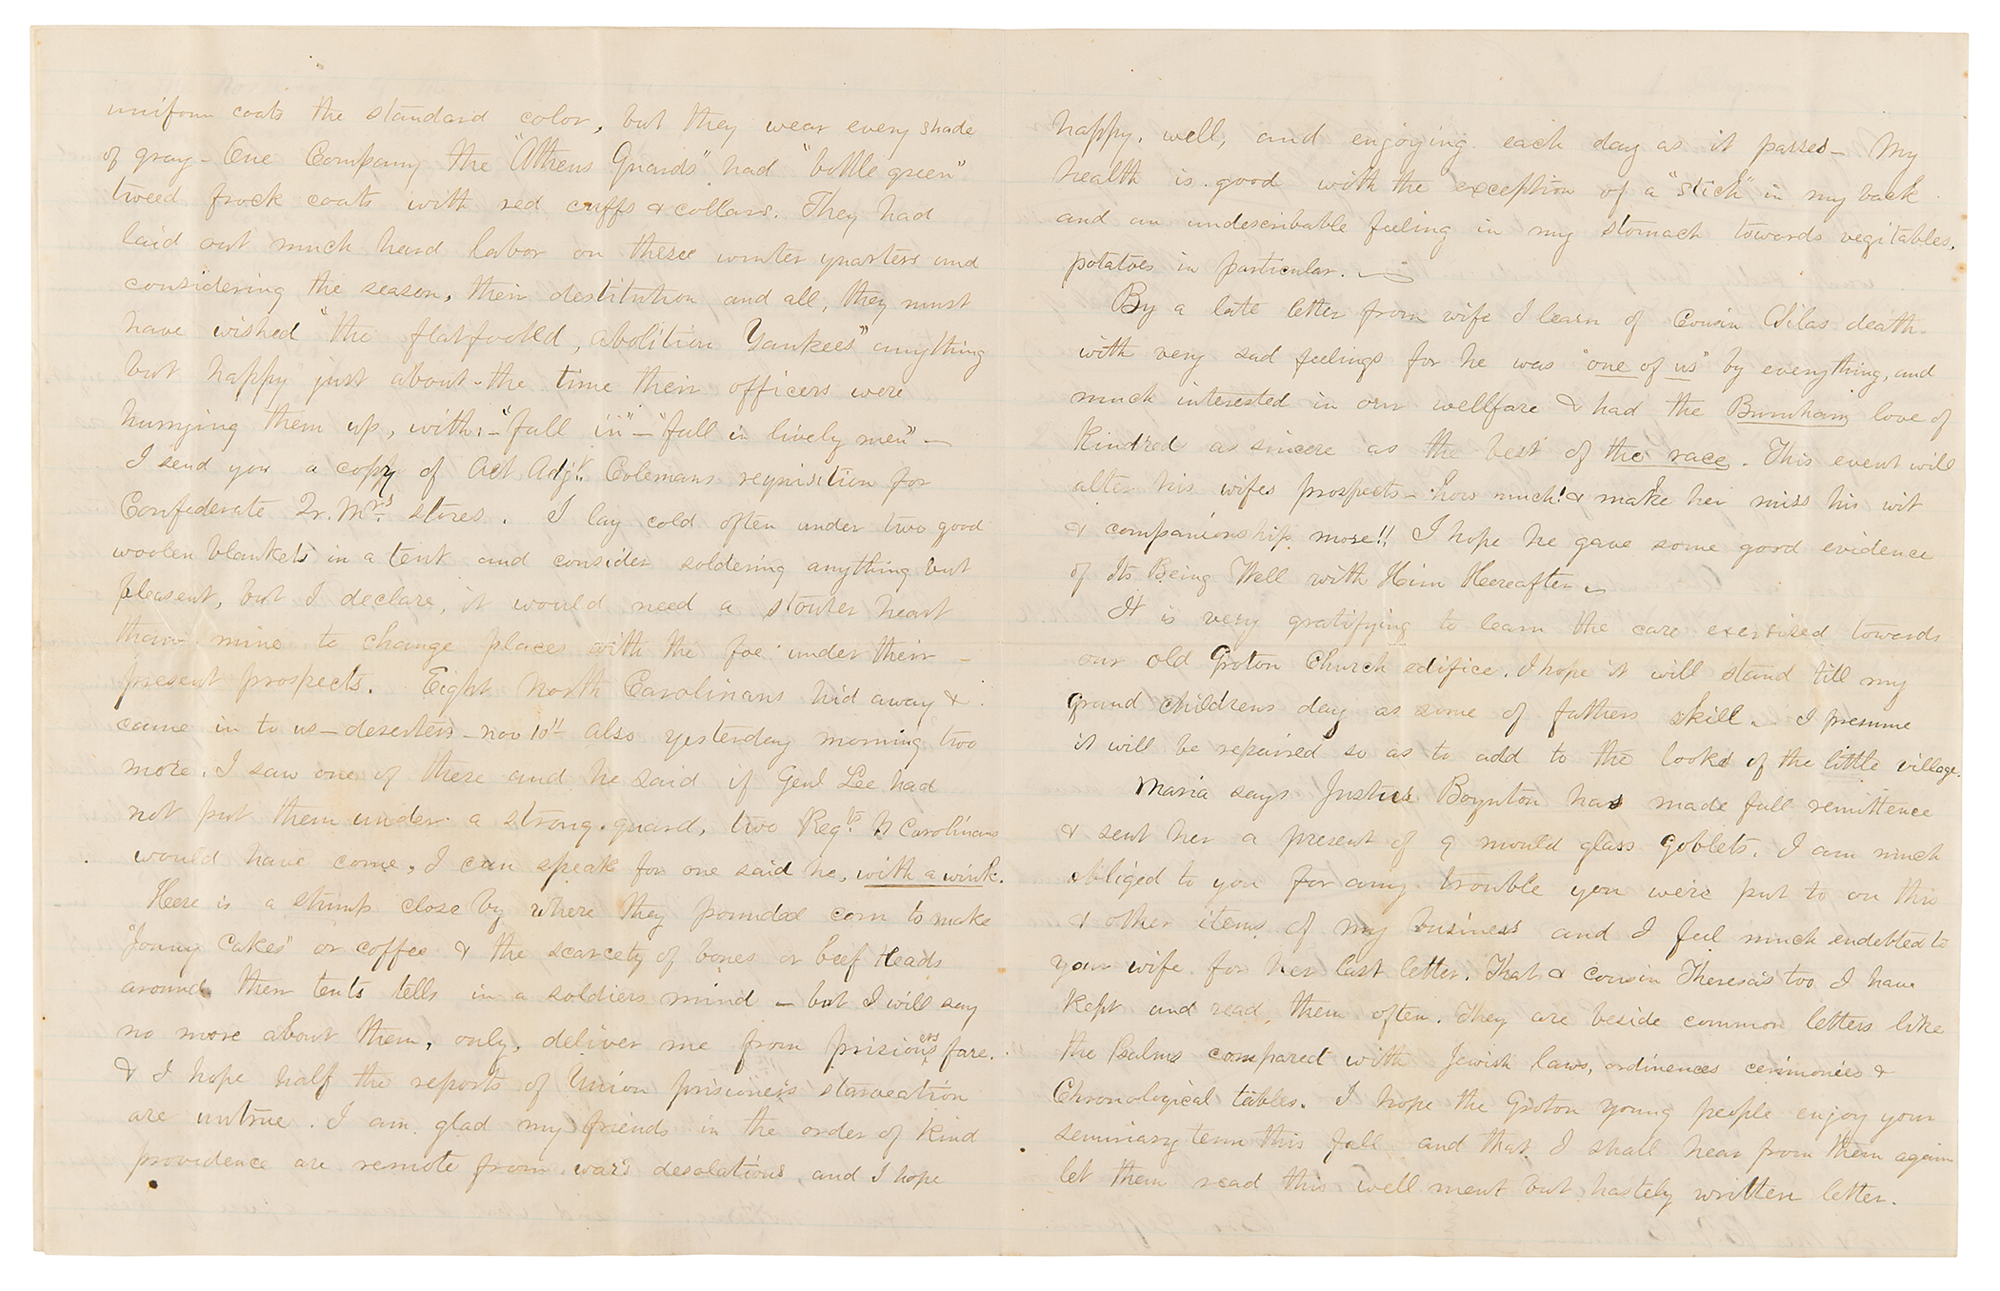 uniform coats the standard color, but they wear every shade
of gray - One Company the "Athens Guards" had "bottle green"
tweed frock coats with red cuffs & collars. They had
laid out much hard labor on these winter quarters and
considering the season, their destitution and all, they must
have wished "the flatfooted, abolition Yankees" anything
but happy just about the time their officers were
hurrying them up, with:- "fall in" - "fall in lively men" -
I send you a copy of Act Adjt. Colemans requisition for
Confederate Qr. Mrs stores. I lay cold often under two good
woolen blankets in a tent and consider soldering anything but
pleasent, but I declare, it would need a stouter heart
than mine to change places with the foe under their -
present prospects. Eight North Carolinans hid away &
came in to us - deserters - nov 10th also yesterday morning two
more. I saw one of these and he said if Genl Lee had
not put them under a strong guard, two Regts N Carolinans
would have come, I can speak for one said he, with a wink.
Here is a stump close by where they pounded corn to make
"Jonny Cakes" or coffee & the scarcety of bones or beef Heads
around their tents tells in a soldiers mind - but I will say
no more about them, only, deliver me from prisioners fare.
& I hope half the reports of Union prisioners starveation
are untrue. I am glad my friends in the order of kind
providence are remote from war's desolations and I hope
happy, well, and enjoying each day as it passes - My
health is good with the exception of a "stich" in my back
and an undescribable feeling in my stomach towards vegitables,
potatoes in particular.
By a late letter from wife I learn of Cousin Silas death
with very sad feelings for he was "one of us" by everything, and
much interested in our wellfare & had the Burnham love of
Kindred as sincere as the best of the race. This event will
alter his wifes prospects - how much! & make her miss his wit
& companionship more!! I hope he gave some good evidence
of Its Being Well with Him Heereafter
It is very gratifying to learn the care exersized towards
our old Groton Church edifice. I hope it will stand till my
grand childrens day as some of fathers skill. I presume
it will be repaired so as to add to the looks of the little village.
Maria says Justus Boynton has made full remittence
& sent her a present of 9 mould glass goblets. I am much
obliged to you for any trouble you were put to on this
& other items of my business and I feel much endebted to
your wife for her last letter. That & cousin Theresa's too I have
kept and read them often. They are beside common letters like
the Psalms compared with Jewish laws, ordinences cerimonies &
Chronological tables. I hope the Groton young people enjoy your
seminary term this fall and that I shall hear from them again
let them read this well ment but hastely written letter.